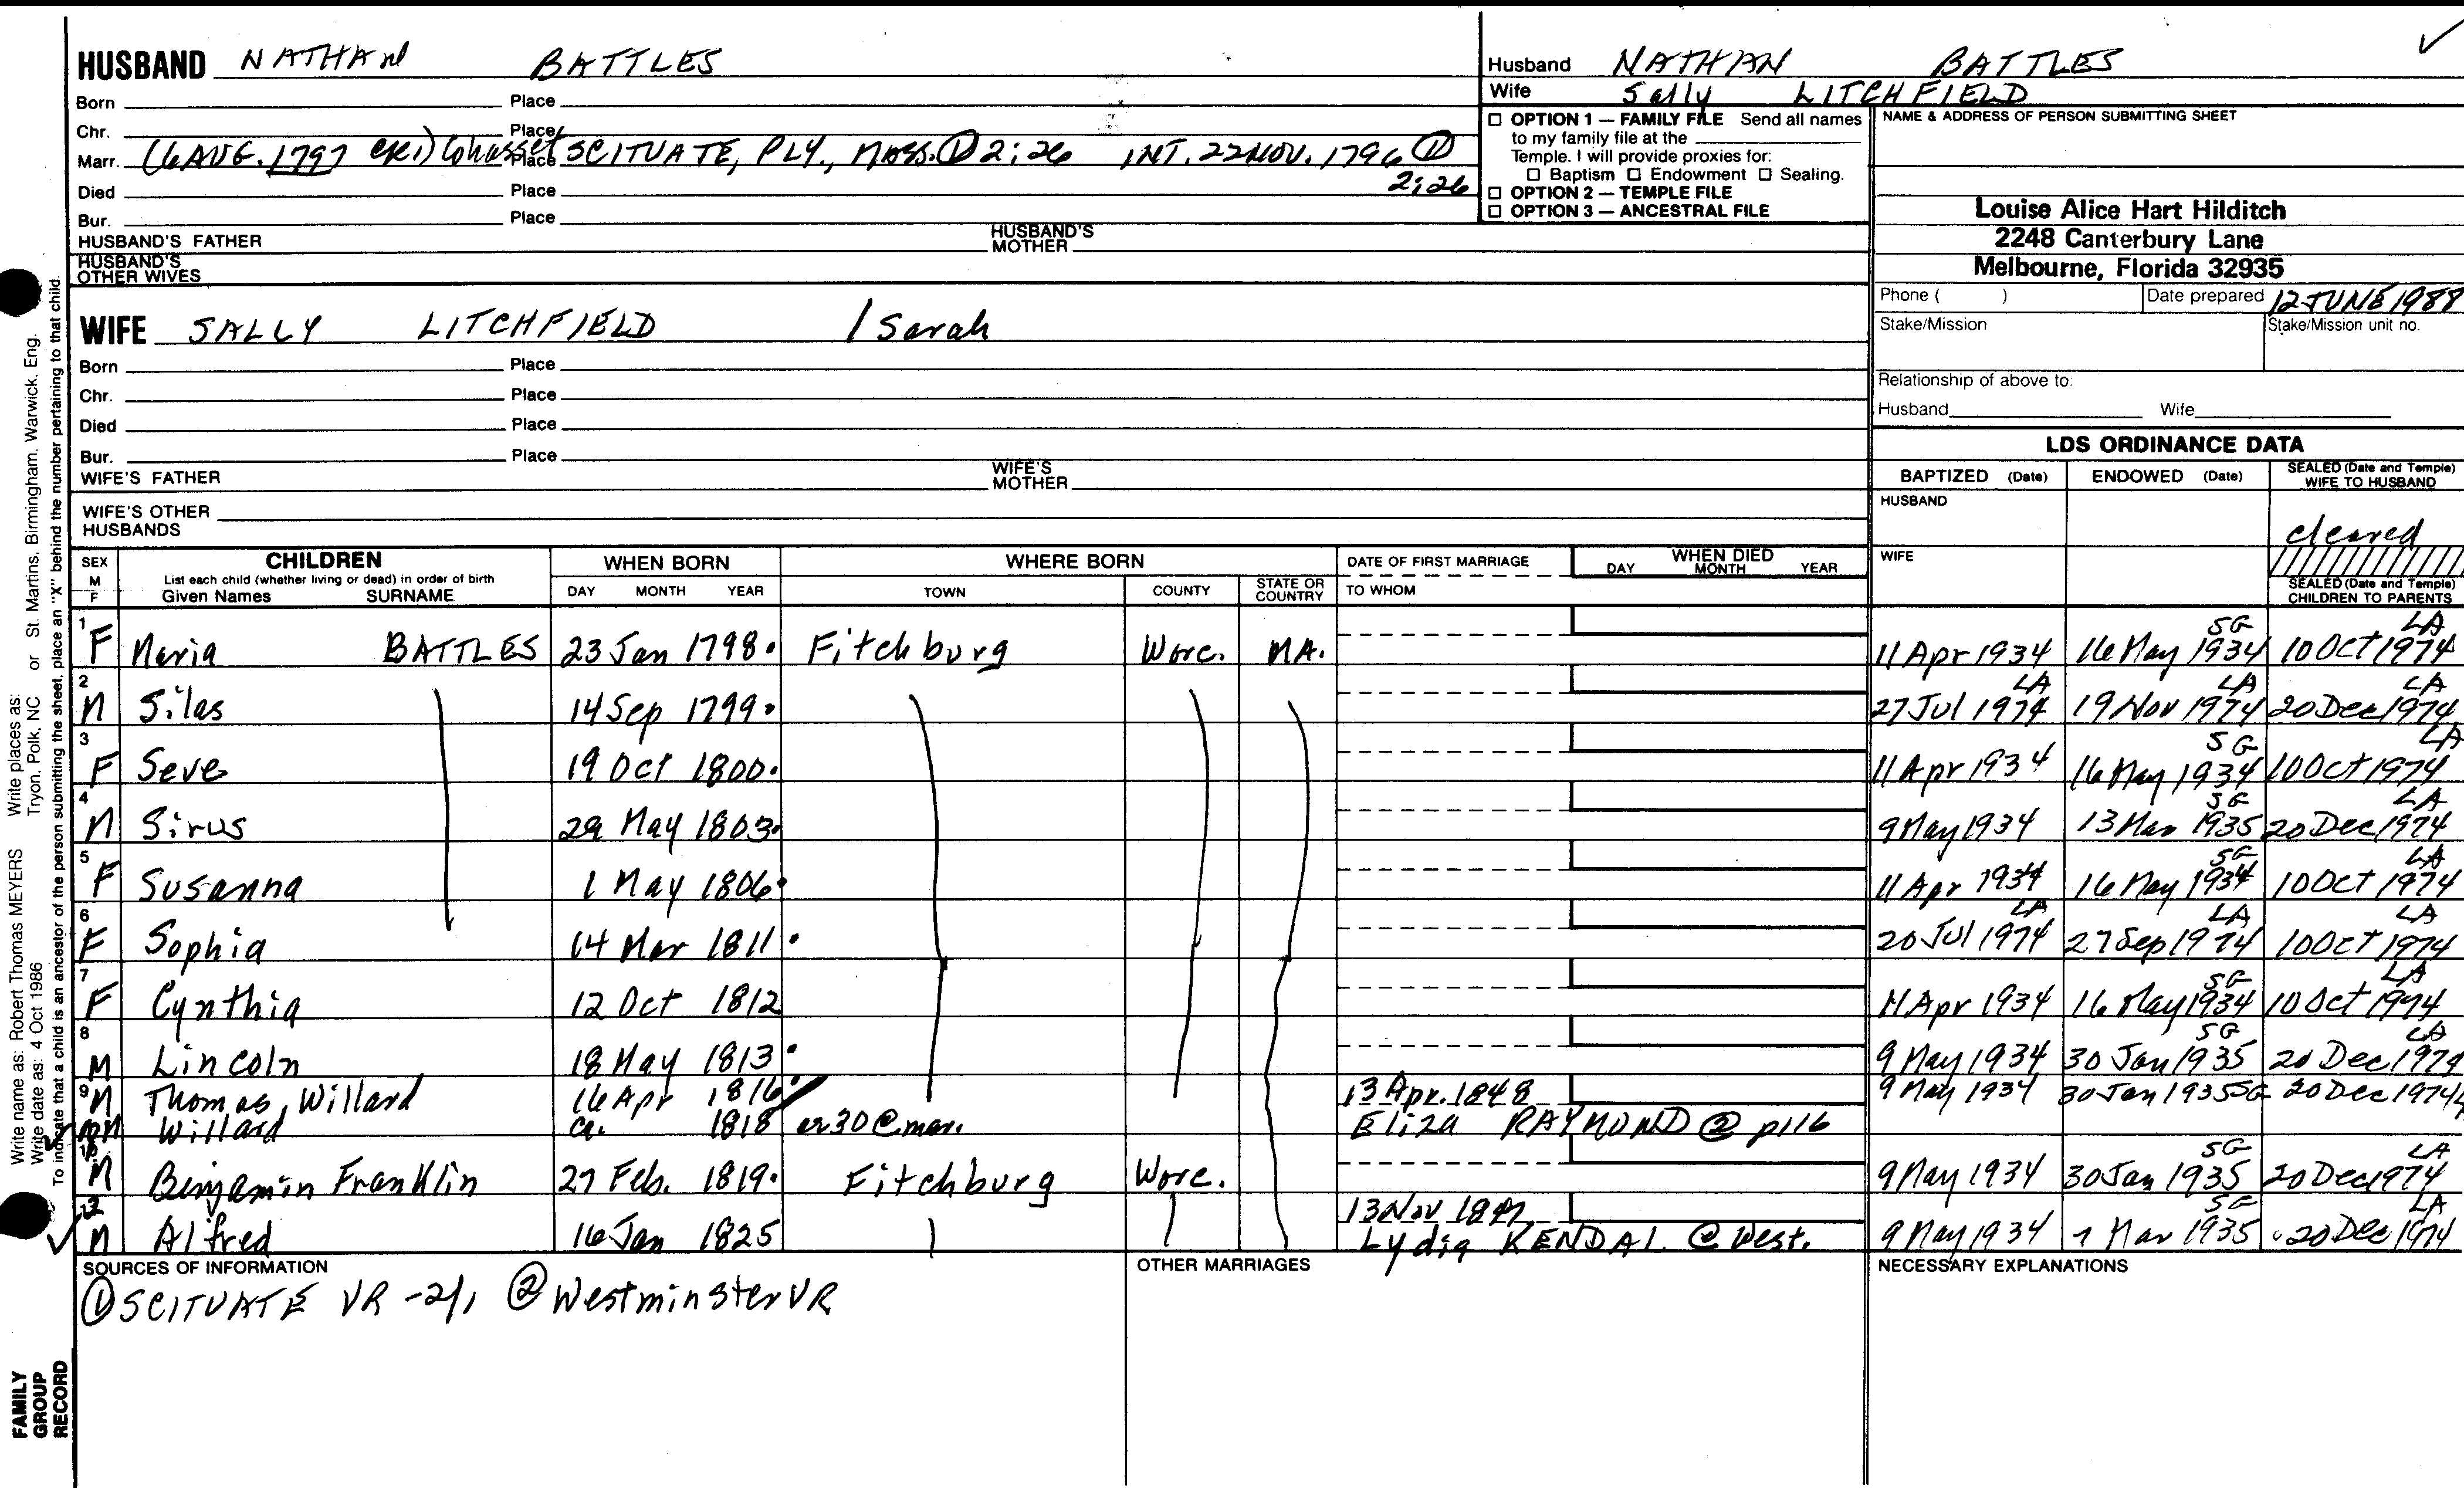 HUSBAND NATHAN BATTLES
Born Place
Chr. Place
Marr. (6 AUG. 1797 CR1) Cohasset Place SCITUATE, PLY., MASS. ① 2:26 INT. 22 NOV. 1796 ①
2:26
Died Place
Bur. Place
HUSBAND'S FATHER HUSBAND'S MOTHER
HUSBAND'S OTHER WIVES
WIFE SALLY LITCHFIELD / Sarah
Born Place
Chr. Place
Died Place
Bur. Place
WIFE'S FATHER WIFE'S MOTHER
WIFE'S OTHER HUSBANDS
Husband NATHAN BATTLES ✓
Wife Sally LITCHFIELD
☐ OPTION 1 — FAMILY FILE Send all names
to my family file at the
Temple. I will provide proxies for:
☐ Baptism ☐ Endowment ☐ Sealing.
☐ OPTION 2 — TEMPLE FILE
☐ OPTION 3 — ANCESTRAL FILE
NAME & ADDRESS OF PERSON SUBMITTING SHEET
Louise Alice Hart Hilditch
2248 Canterbury Lane
Melbourne, Florida 32935
Phone ( ) Date prepared 12 JUNE 1988
Stake/Mission Stake/Mission unit no.
Relationship of above to:
Husband Wife
LDS ORDINANCE DATA
BAPTIZED (Date) ENDOWED (Date) SEALED (Date and Temple) WIFE TO HUSBAND
HUSBAND
cleared
WIFE
SEALED (Date and Temple) CHILDREN TO PARENTS
SEX M F CHILDREN WHEN BORN WHERE BORN DATE OF FIRST MARRIAGE WHEN DIED
List each child (whether living or dead) in order of birth
Given Names SURNAME DAY MONTH YEAR TOWN COUNTY STATE OR COUNTRY TO WHOM DAY MONTH YEAR
1 F Maria BATTLES 23 Jan 1798. Fitchburg Worc. MA. 11 Apr 1934 16 May 1934 SG 10 Oct 1974 LA
2 M Silas 14 Sep 1799. 27 Jul 1974 LA 19 Nov 1974 LA 20 Dec 1974 LA
3 F Seve 19 Oct 1800. 11 Apr 1934 16 May 1934 SG 10 Oct 1974 LA
4 M Sirus 29 May 1803. 9 May 1934 13 Mar 1935 SG 20 Dec 1974 LA
5 F Susanna 1 May 1806. 11 Apr 1934 16 May 1934 SG 10 Oct 1974 LA
6 F Sophia 14 Mar 1811. 20 Jul 1974 LA 27 Sep 1974 LA 10 Oct 1974 LA
7 F Cynthia 12 Oct 1812 11 Apr 1934 16 May 1934 SG 10 Oct 1974 LA
8 M Lincoln 18 May 1813. 9 May 1934 30 Jan 1935 SG 20 Dec 1974 LA
9 M Thomas, Willard 16 Apr 1816. 13 Apr. 1848 9 May 1934 30 Jan 1935 SG 20 Dec 1974
M Willard ca. 1818 or 30 @ mar. Eliza RAYMOND ② p116
10 M Benjamin Franklin 27 Feb. 1819. Fitchburg Worc. 9 May 1934 30 Jan 1935 SG 20 Dec 1974 LA
12 M Alfred 16 Jan 1825 13 Nov Lydia KENDAL @ West. 9 May 1934 Mar 1935 SG 20 Dec 1974 LA
SOURCES OF INFORMATION OTHER MARRIAGES NECESSARY EXPLANATIONS
① SCITUATE VR - 2/1 ② Westminster VR
Write name as: Robert Thomas MEYERS Write places as: Tryon, Polk, NC or St. Martins, Birmingham, Warwick, Eng.
Write date as: 4 Oct 1986
To indicate that a child is an ancestor of the person submitting the sheet, place an "X" behind the number pertaining to that child.
FAMILY
GROUP
RECORD